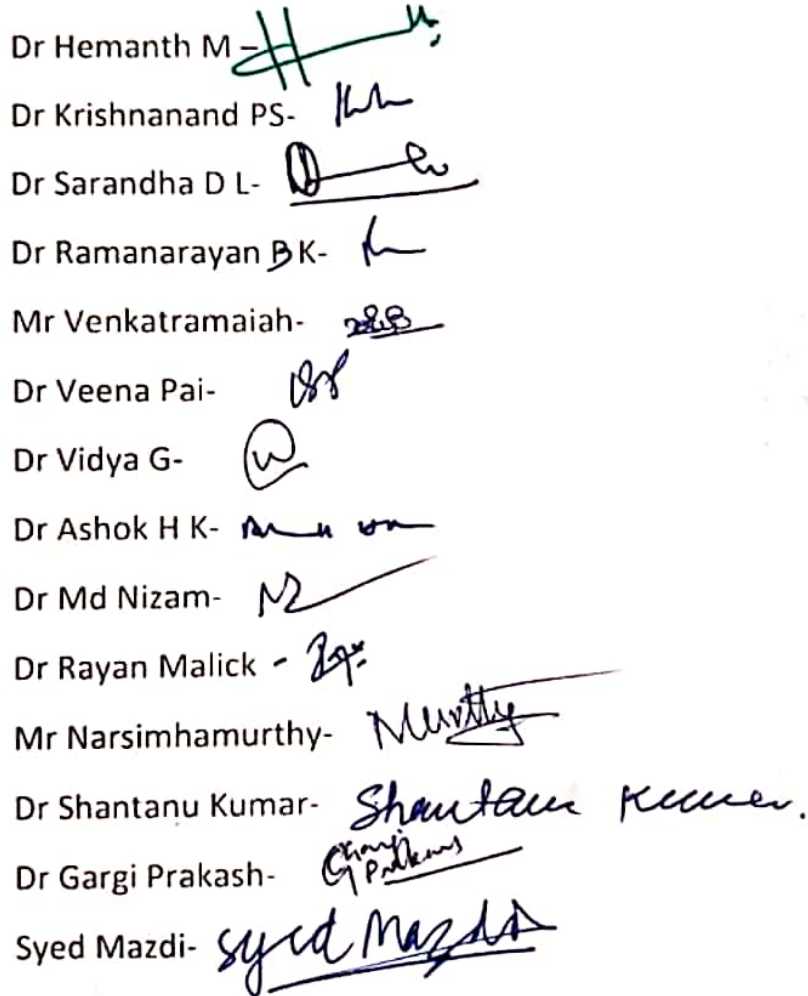 Dr Hemanth M –
Dr Krishnanand PS-
Dr Sarandha D L-
Dr Ramanarayan B K-
Mr Venkatramaiah-
Dr Veena Pai-
Dr Vidya G-
Dr Ashok H K-
Dr Md Nizam-
Dr Rayan Malick -
Mr Narsimhamurthy- Murthy
Dr Shantanu Kumar- Shantanu Kumar.
Dr Gargi Prakash-
Syed Mazdi- Syed Mazdi